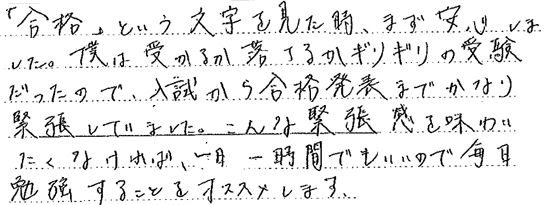 「合格」という文字を見た時、まず安心しま
した。僕は受かるか落ちるかギリギリの受験
だったので、入試から合格発表までかなり
緊張していました。こんな緊張感を味わい
たくなければ、一日一時間でもいいので毎日
勉強することをオススメします。